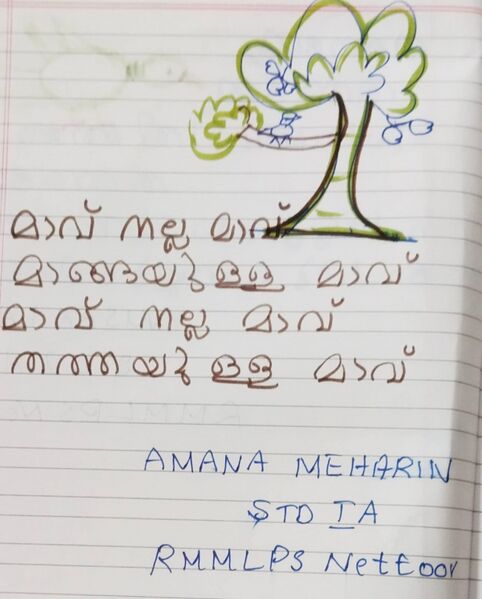 മാവ് നല്ല മാവ്
മാങ്ങയുള്ള മാവ്
മാവ് നല്ല മാവ്
തത്തയുള്ള മാവ്
AMANA MEHARIN
STD I A
RMMLPS Nettoor